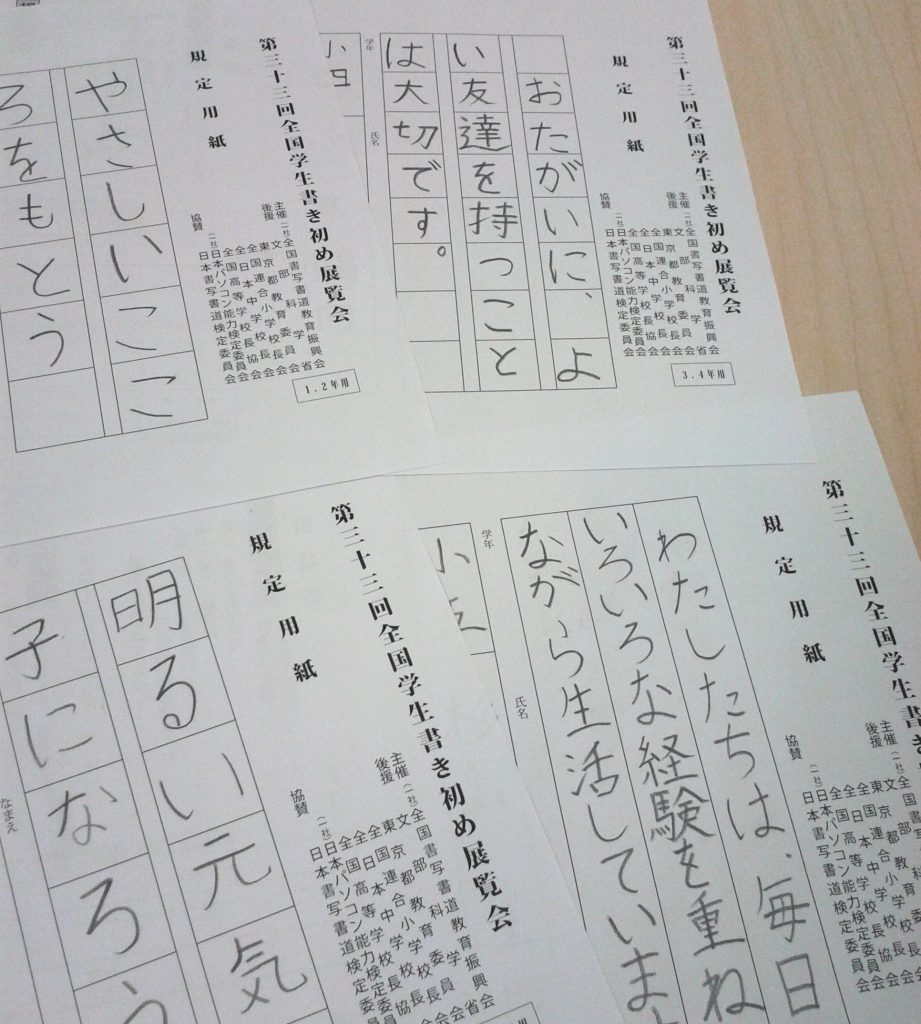 第三十三回全国学生書き初め展覧会
規定用紙
主催 (一社)全国書写書道教育振興会
後援 文部科学省
東京都教育委員会
全国連合小学校長会
全日本中学校長会
全国高等学校長協会
協賛 (一社)日本パソコン能力検定委員会
日本書写書道検定委員会
1.2年用
やさしいここ
ろをもとう
第三十三回全国学生書き初め展覧会
規定用紙
主催 (一社)全国書写書道教育振興会
後援 文部科学省
東京都教育委員会
全国連合小学校長会
全日本中学校長会
全国高等学校長協会
協賛 (一社)日本パソコン能力検定委員会
日本書写書道検定委員会
3.4年用
おたがいに、よ
い友達を持つこと
は大切です。
学年
小
氏名
第三十三回全国学生書き初め展覧会
規定用紙
主催 (一社)全国書写書道教育振興会
後援 文部科学省
東京都教育委員会
全国連合小学校長会
全日本中学校長会
全国高等学校長協会
協賛 (一社)日本パソコン能力検定委員会
日本書写書道検定委員会
年用
明るい元気
子になろう
なまえ
第三十三回全国学生書き
規定用紙
主催 (一社)全国書
後援 文部
東京都
全国連合小学校長
全日本中学校長
全国高等学校長協会
協賛 (一社)日本パソコン能力検定委員会
日本書写書道検定委員会
わたしたちは、毎日
いろいろな経験を重ね
ながら生活していま
学年
小
氏名